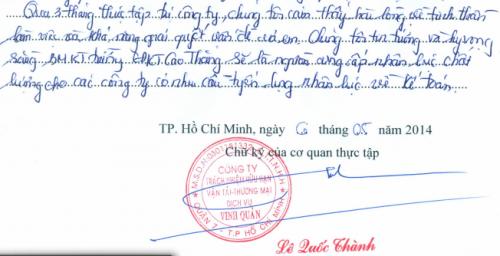 Qua 3 tháng thực tập tại công ty, chúng tôi cảm thấy hài lòng về tinh thần
làm việc và khả năng giải quyết vấn đề của em. Chúng tôi tin tưởng và hy vọng
rằng BM.KT trường CĐKT Cao Thắng sẽ là nguồn cung cấp nhân lực chất
lượng cho các công ty có nhu cầu tuyển dụng nhân lực về kế toán.
TP. Hồ Chí Minh, ngày 6 tháng 05 năm 2014
Chữ ký của cơ quan thực tập
CÔNG TY
TRÁCH NHIỆM HỮU HẠN
VẬN TẢI-THƯƠNG MẠI
DỊCH VỤ
VINH QUÂN
T.P HỒ CHÍ MINH
Lê Quốc Thành